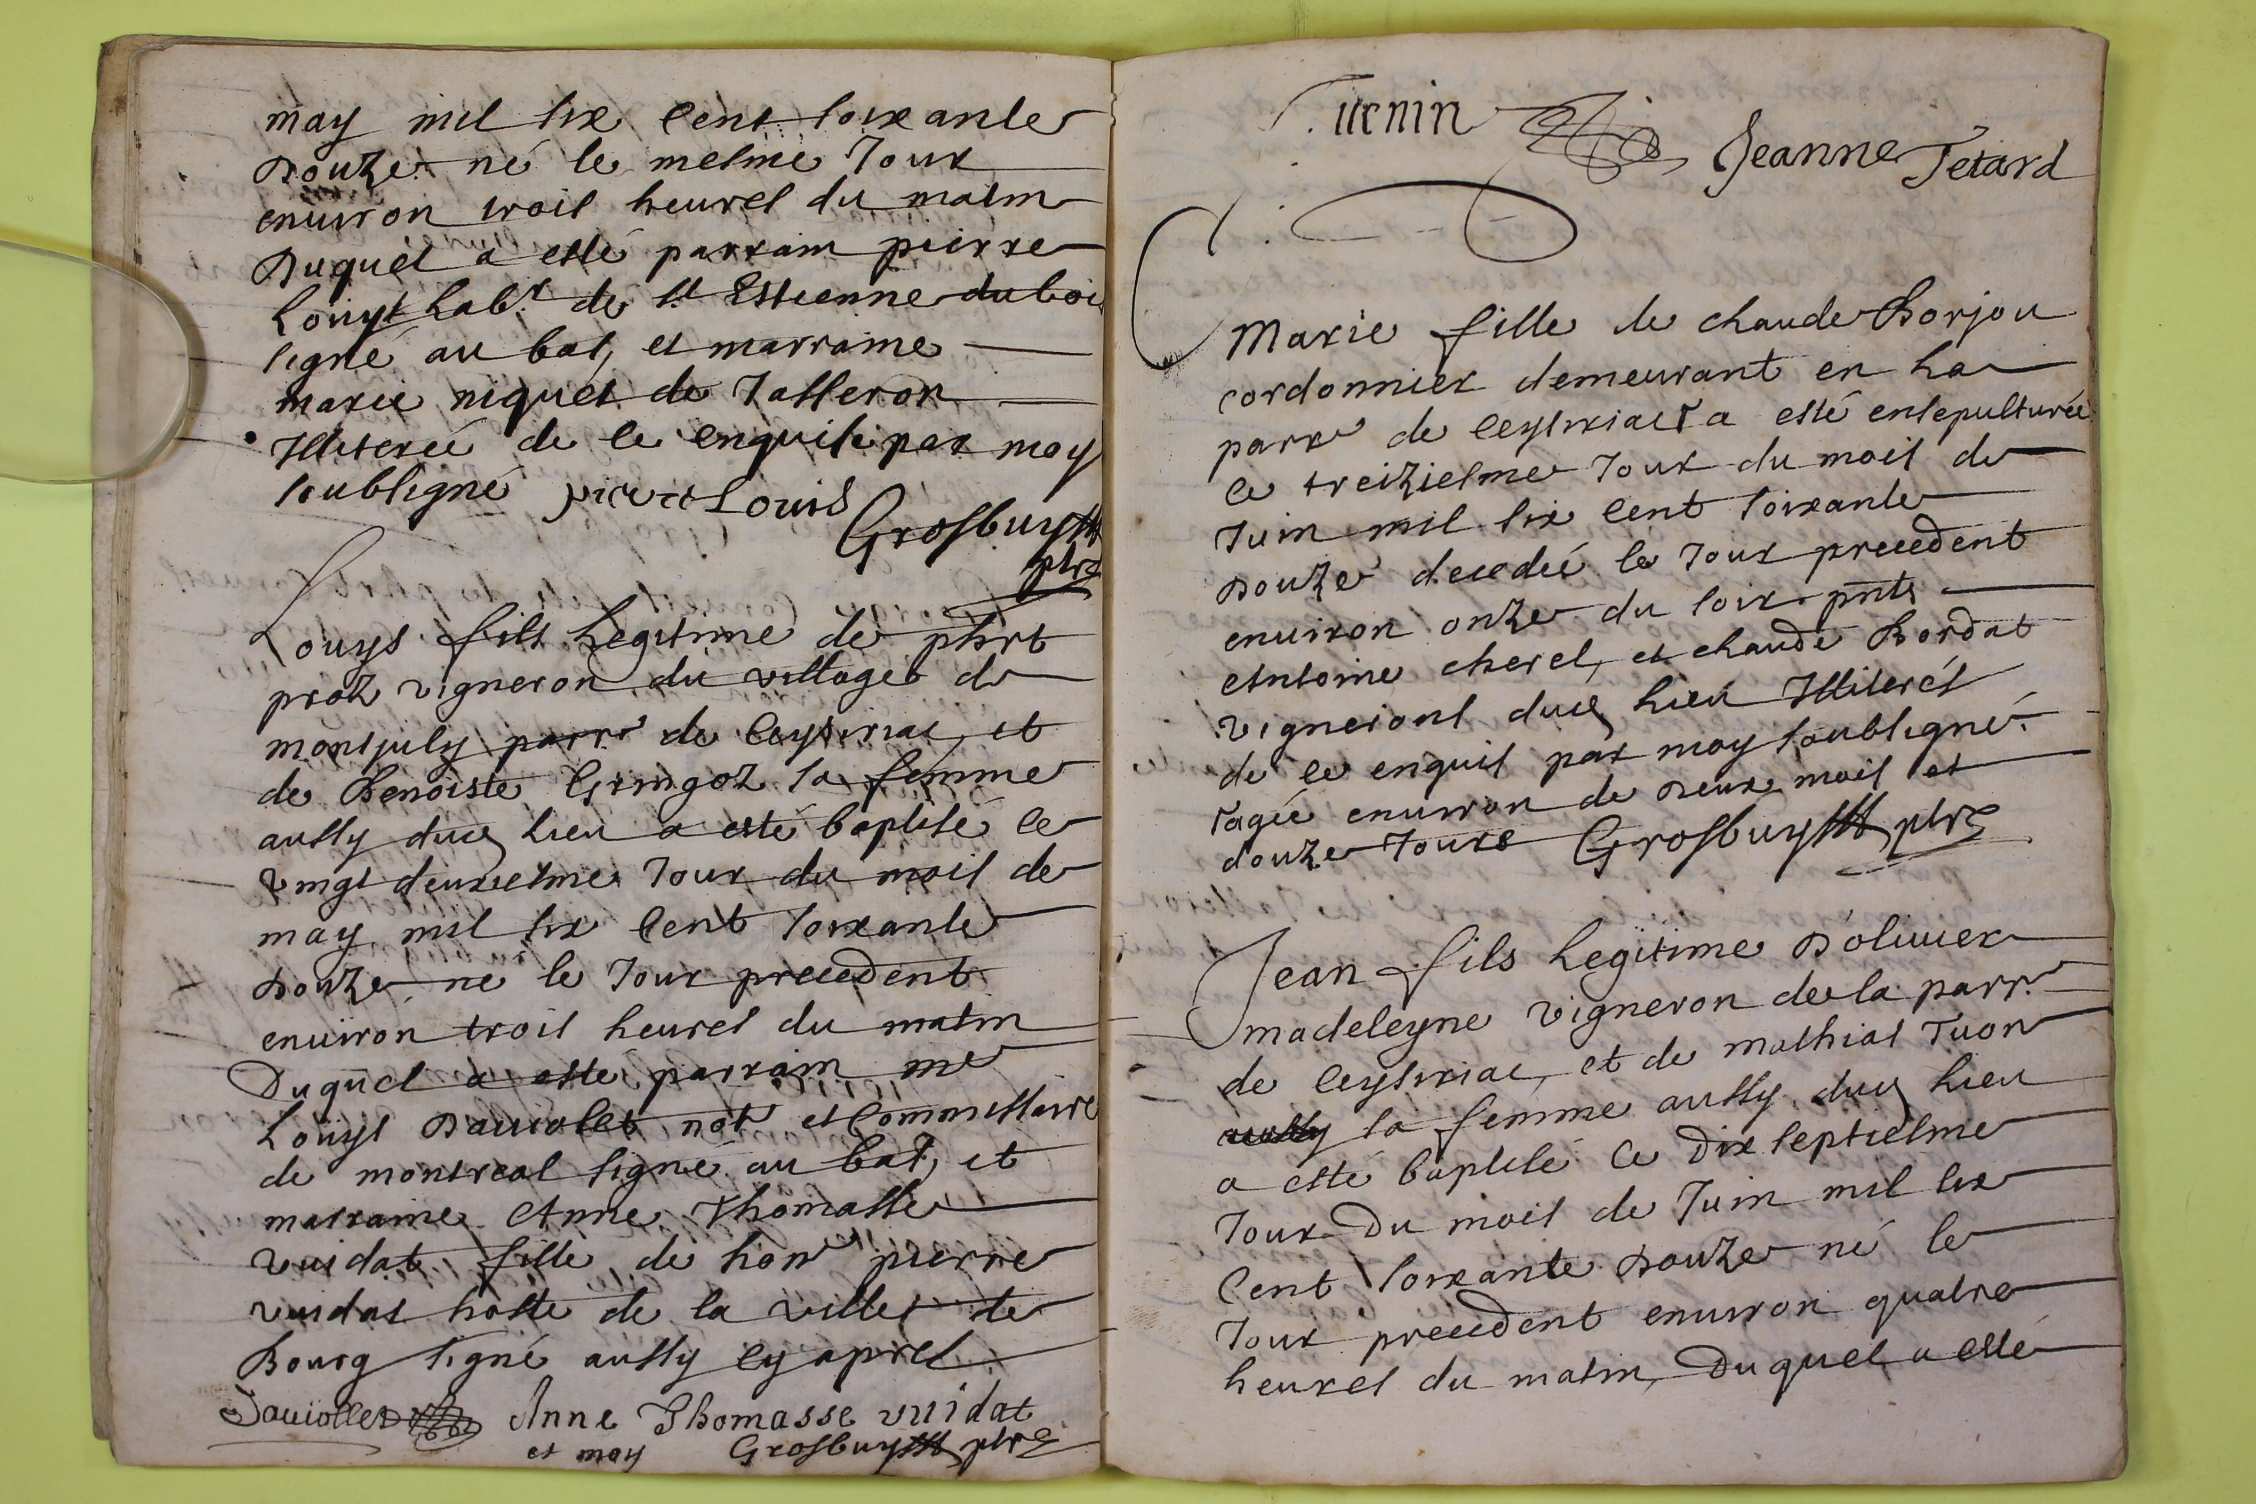 may mil six cent soixante
douze né le mesme Jour
enuiron trois heures du matin
Duquel a esté parrain pierre
Louys Labr de st Estienne du bois
signé au bas, et marraine
marie niquet de Jasseron
Illiterée de ce enquise par moy
soubsigné pierre Louis
Grosbuyst
ptre
Louys fils Legitime de phrt
proz vigneron du village de
montjuly parre de Ceyseriac, et
de Benoiste Gringoz sa femme
aussy dud Lieu a esté baptisé ce
vingt deuxiesme Jour du mois de
may mil six Cent soixante
douze né le Jour precedent
enuiron trois heures du matin
Duquel a esté parrain me
Louys Dauiollet notre et Commissaire
de montreal signé au bas, et
marraine Anne Thomasse
vuidat fille de honr pierre
vuidat hoste de la ville de
Bourg signé aussy cy apres
Dauiollet Anne Thomasse vuidat
et moy Grosbuyst ptre
Jeanne Tetard
Marie fille de Claude Borjon
cordonnier demeurant en La
parre de Ceyseriact a esté ensepulturée
ce treiziesme Jour du mois de
Juin mil six cent soixante
douze decedée le Jour precedent
enuiron onze du soir pnts
Antoine cherel, et claude Bordat
vignerons dud Lieu Illiterés
de ce enquis par moy soubsigné
l'agée enuiron de deux mois et
douze Jours Grosbuyst ptre
Jean fils Legitime D'oliuier
madeleyne vigneron de la parre
de Ceyseriac, et de mathias Tuon
sa femme aussy dud Lieu
a esté baptisé ce Dix septiesme
Jour Du mois de Juin mil six
Cent soixante douze né le
Jour precedent enuiron quatre
heures du matin, Duquel a esté